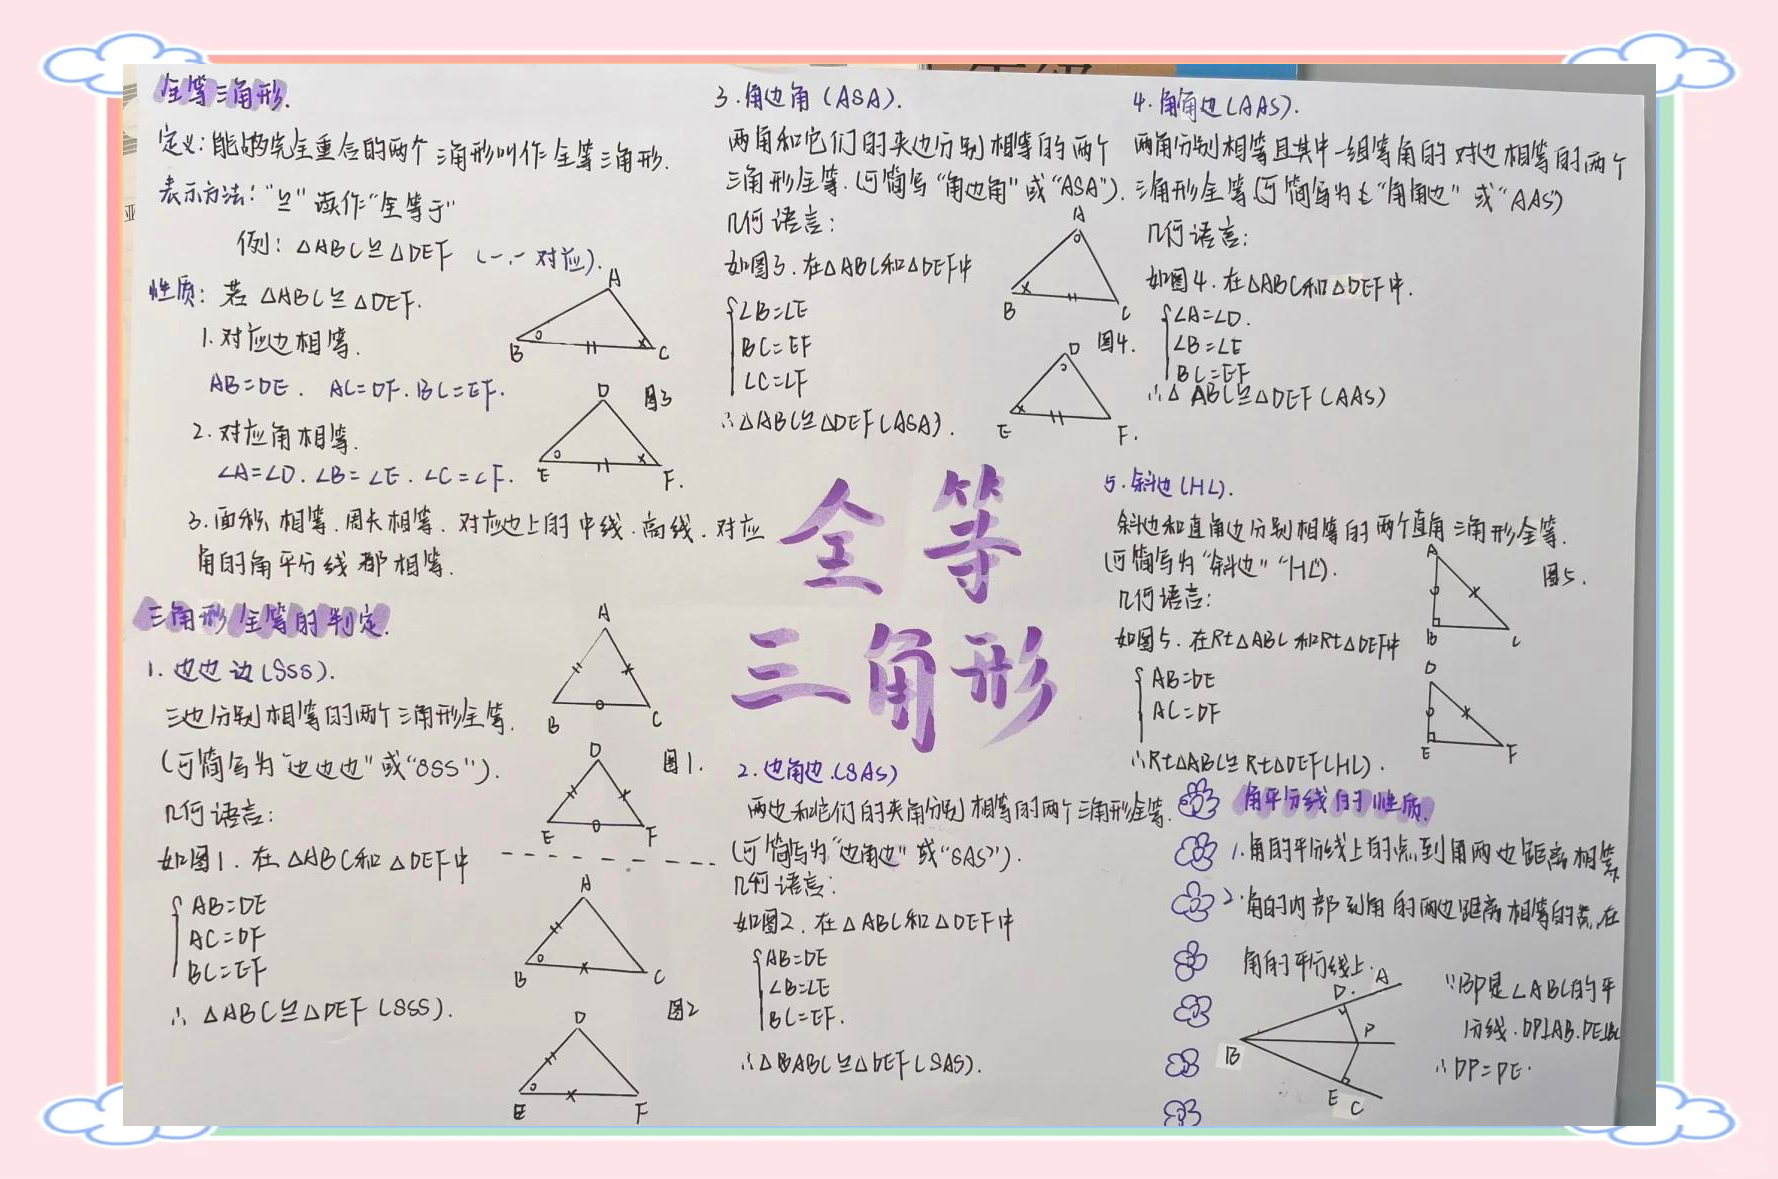 全等三角形.
定义:能够完全重合的两个三角形叫作全等三角形.
表示方法:"≌"读作"全等于"
例: △ABC≌△DEF (一.一对应).
性质: 若 △ABC≌△DEF.
1. 对应边相等.
AB=DE. AC=DF. BC=EF.
2. 对应角相等.
∠A=∠D. ∠B=∠E. ∠C=∠F.
3. 面积相等. 周长相等. 对应边上的中线. 高线. 对应
角的角平分线都相等.
A
B
C
D
图3
E
F.
三角形全等的判定.
1. 边边边(SSS).
三边分别相等的两个三角形全等.
(可简写为"边边边"或"SSS").
几何语言:
如图1. 在△ABC和△DEF中
AB=DE
AC=DF
BC=EF
∴ △ABC≌△DEF (SSS).
A
B
C
D
图1.
E
F
A
B
C
图2
D
E
F
3. 角边角 (ASA).
两角和它们的夹边分别相等的两个
三角形全等.(可简写"角边角"或"ASA").
几何语言:
如图3. 在△ABC和△DEF中
∠B=∠E
BC=EF
∠C=∠F
∴△ABC≌△DEF(ASA).
A
B
C
D
图4.
E
F.
全等
三角形
2. 边角边.(SAS)
两边和它们的夹角分别相等的两个三角形全等.
(可简写为"边角边"或"SAS").
几何语言:
如图2. 在△ABC和△DEF中
AB=DE
∠B=∠E
BC=EF.
∴△BABC≌△DEF(SAS).
4. 角角边(AAS).
两角分别相等且其中一组等角的对边相等的两个
三角形全等.(可简写为"角角边"或"AAS")
几何语言:
如图4. 在△ABC和△DEF中.
∠A=∠D.
∠B=∠E
BC=EF
∴△ABC≌△DEF(AAS)
5. 斜边(HL).
斜边和直角边分别相等的两个直角三角形全等.
(可简写为"斜边" "HL").
几何语言:
如图5. 在Rt△ABC和Rt△DEF中
AB=DE
AC=DF
∴Rt△ABC≌Rt△DEF(HL).
A
图5.
B
C
D
E
F
角平分线的性质.
1. 角的平分线上的点到角两边距离相等.
2. 角的内部到角的两边距离相等的点在
角的平分线上.
∵BP是∠ABC的平
分线. DP⊥AB. PE⊥BC
∴DP=PE.
A
D.
P
B
E
C